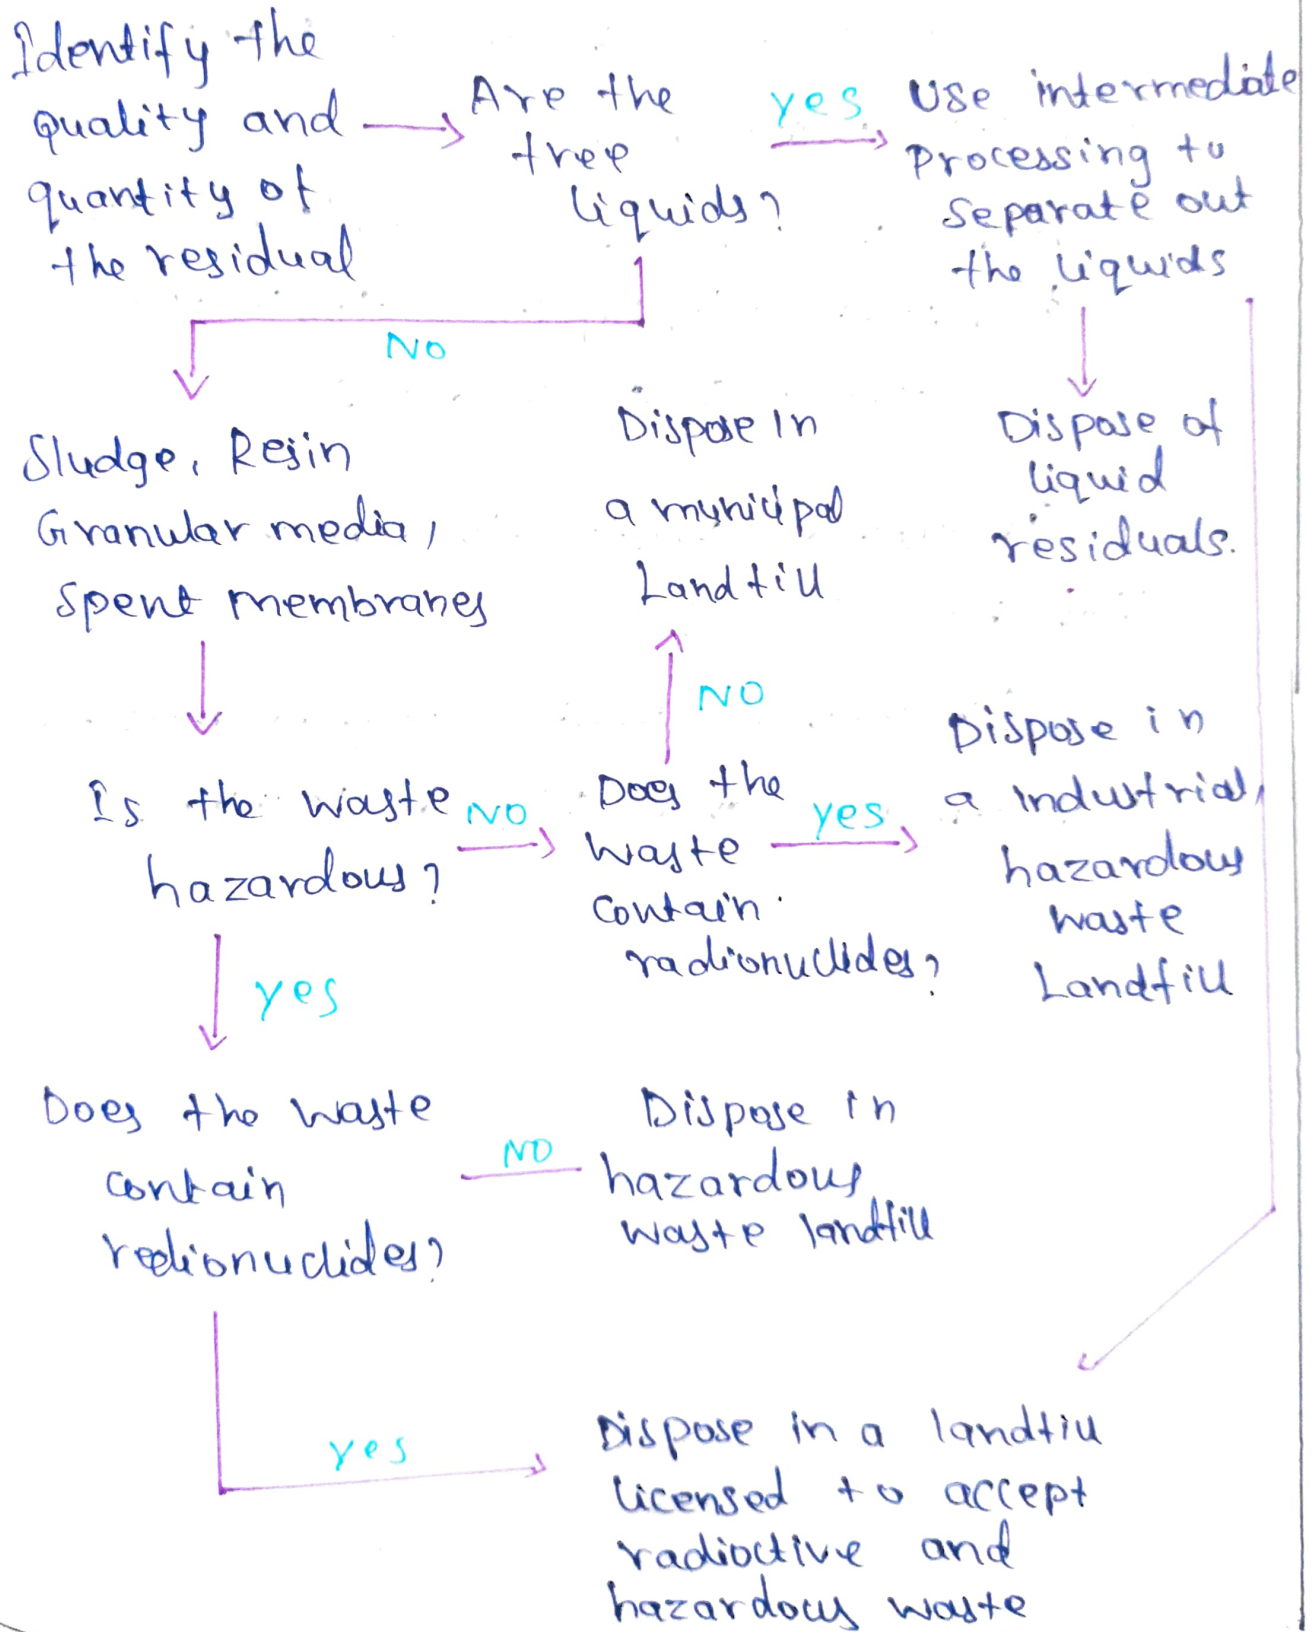 Identify the
quality and
quantity of
the residual
Are the
free
liquids?
yes
Use intermediate
Processing to
Separate out
the liquids
No
Sludge, Resin
Granular media,
Spent membranes
Dispose In
a municipal
Landfill
Dispose of
liquid
residuals.
NO
Is the waste
hazardous?
NO
Does the
waste
contain
radionuclides?
yes
Dispose in
a industrial,
hazardous
waste
Landfill
yes
Does the waste
contain
redionuclides?
NO
Dispose in
hazardous
waste landfill
yes
Dispose in a landfill
licensed to accept
radioctive and
hazardous waste